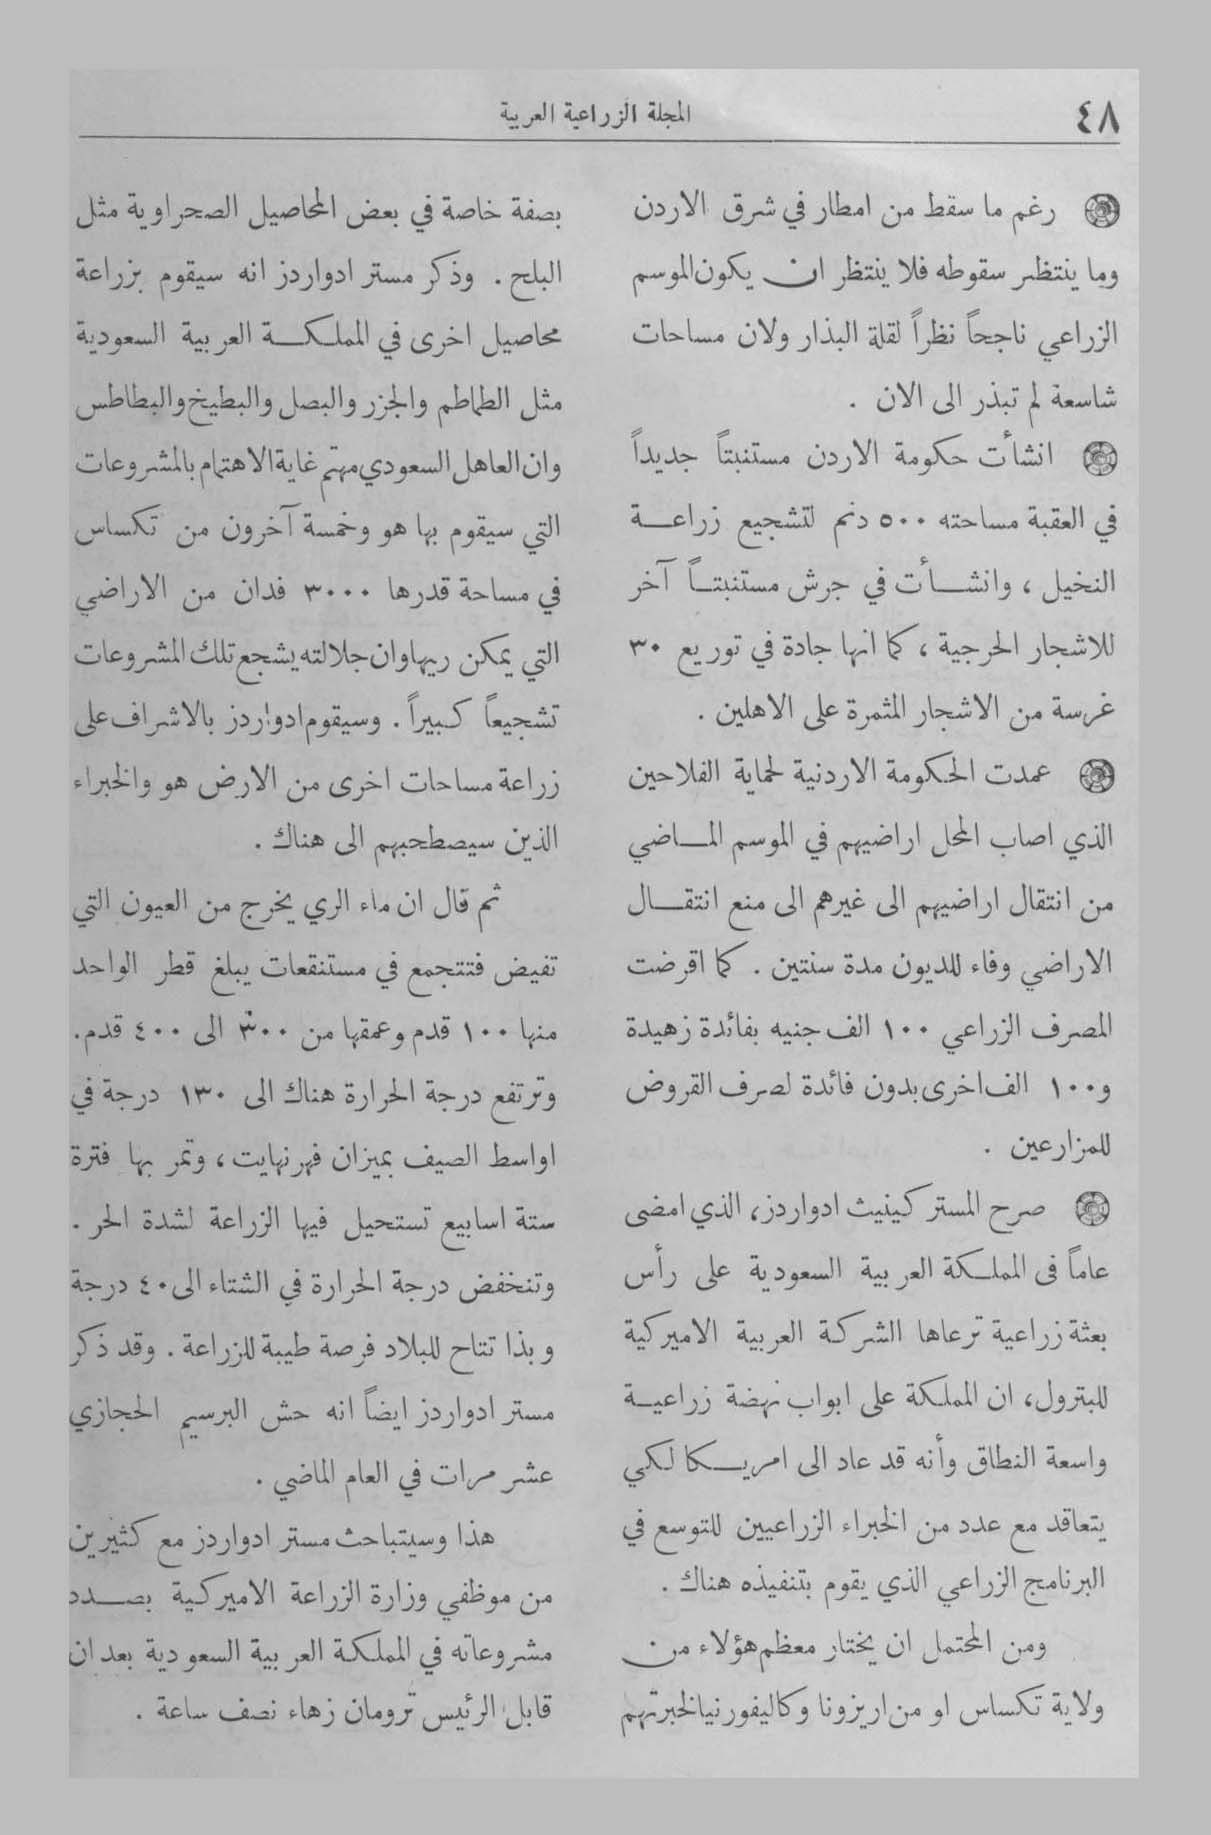 ٤٨
المجلة الزراعية العربية
رغم ما سقط من امطار في شرق الاردن
وما ينتظر سقوطه فلا ينتظر ان يكون الموسم
الزراعي ناجحاً نظراً لقلة البذار ولان مساحات
شاسعة لم تبذر الى الان .
انشأت حكومة الاردن مستنبتاً جديداً
في العقبة مساحته ٥٠٠ دنم لتشجيع زراعة
النخيل ، وانشأت في جرش مستنبتاً آخر
للاشجار الحرجية ، كما انها جادة في توزيع ٣٠
غرسة من الاشجار المثمرة على الاهلين .
عمدت الحكومة الاردنية لحماية الفلاحين
الذي اصاب المحل اراضيهم في الموسم الماضي
من انتقال اراضيهم الى غيرهم الى منع انتقال
الاراضي وفاء للديون مدة سنتين . كما اقرضت
المصرف الزراعي ١٠٠ الف جنيه بفائدة زهيدة
و١٠٠ الف اخرى بدون فائدة لصرف القروض
للمزارعين .
صرح المستر كينيث ادواردز، الذي امضى
عاماً في المملكة العربية السعودية على رأس
بعثة زراعية ترعاها الشركة العربية الاميركية
للبترول، ان المملكة على ابواب نهضة زراعية
واسعة النطاق وأنه قد عاد الى امريكا لكي
يتعاقد مع عدد من الخبراء الزراعيين للتوسع في
البرنامج الزراعي الذي يقوم بتنفيذه هناك .
ومن المحتمل ان يختار معظم هؤلاء من
ولاية تكساس او من اريزونا وكاليفورنيا لخبرتهم
بصفة خاصة في بعض المحاصيل الصحراوية مثل
البلح . وذكر مستر ادواردز انه سيقوم بزراعة
محاصيل اخرى في المملكة العربية السعودية
مثل الطماطم والجزر والبصل والبطيخ والبطاطس
وان العاهل السعودي مهتم غاية الاهتمام بالمشروعات
التي سيقوم بها هو وخمسة آخرون من تكساس
في مساحة قدرها ٣٠٠٠ فدان من الاراضي
التي يمكن ريها وان جلالته يشجع تلك المشروعات
تشجيعاً كبيراً . وسيقوم ادواردز بالاشراف على
زراعة مساحات اخرى من الارض هو والخبراء
الذين سيصطحبهم الى هناك .
ثم قال ان ماء الري يخرج من العيون التي
تفيض فتتجمع في مستنقعات يبلغ قطر الواحد
منها ١٠٠ قدم وعمقها من ٣٠٠ الى ٤٠٠ قدم .
وترتفع درجة الحرارة هناك الى ١٣٠ درجة في
اواسط الصيف بميزان فهرنهايت ، وتمر بها فترة
ستة اسابيع تستحيل فيها الزراعة لشدة الحر .
وتنخفض درجة الحرارة في الشتاء الى ٤٠ درجة
وبذا تتاح للبلاد فرصة طيبة للزراعة . وقد ذكر
مستر ادواردز ايضاً انه حش البرسيم الحجازي
عشر مرات في العام الماضي .
هذا وسيتباحث مستر ادواردز مع كثيرين
من موظفي وزارة الزراعة الاميركية بصدد
مشروعاته في المملكة العربية السعودية بعد ان
قابل الرئيس ترومان زهاء نصف ساعة .